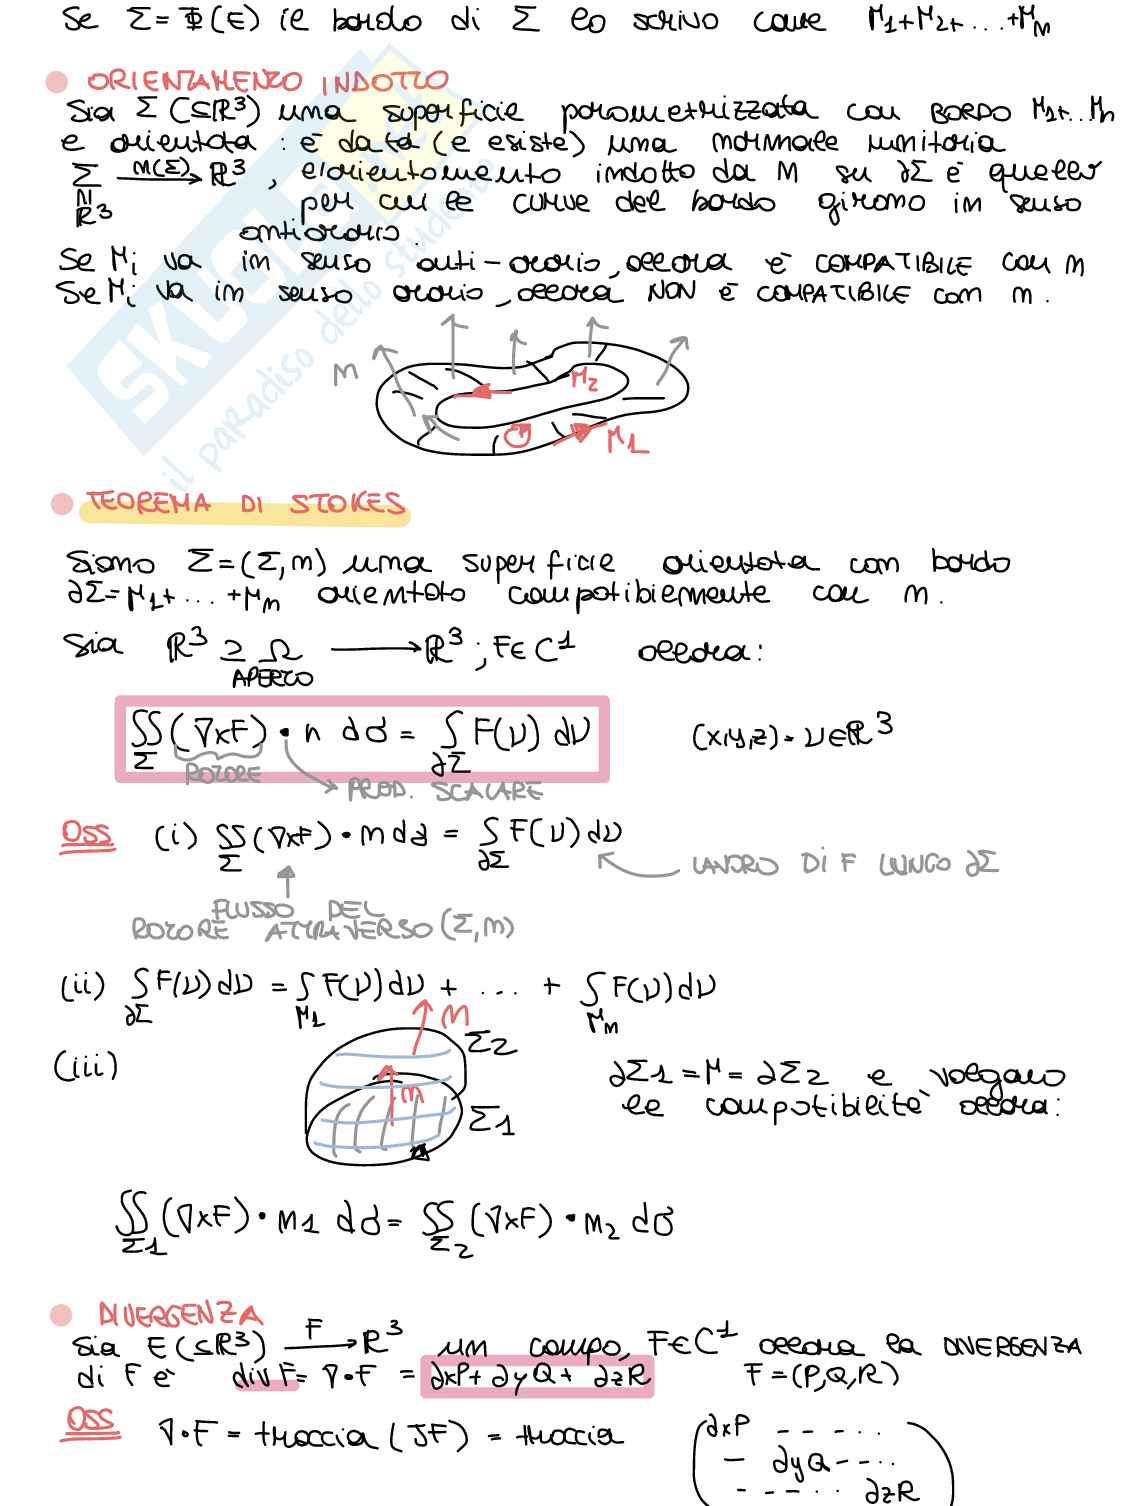 Se Σ=Φ(E) il bordo di Σ lo scrivo come γ1+γ2+...+γm
ORIENTAMENTO INDOTTO
Sia Σ (⊆ℝ³) una superficie parametrizzata con BORDO γ1+...γn
e orientata : è data (e esiste) una normale unitaria
Σ M(Σ)→ ℝ³, l'orientamento indotto da n su ∂Σ è quello
∩ ℝ³ per cui le curve del bordo girano in senso
antiorario.
Se γi va in senso anti-orario, allora è COMPATIBILE con n
Se γi va in senso orario, allora NON è COMPATIBILE con n.
n
γ2
γ1
TEOREMA DI STOKES
Siano Σ=(Σ,n) una superficie orientata con bordo
∂Σ=γ1+...+γm orientato compatibilmente con n.
Sia ℝ³ ⊇ Ω → ℝ³ ; F∈C¹ allora:
APERTO
∬Σ (∇xF) • n dσ = ∫∂Σ F(ν) dν (x,y,z)=ν∈ℝ³
ROTORE
PROD. SCALARE
Oss (i) ∬Σ (∇xF) • n dσ = ∫∂Σ F(ν) dν
LAVORO DI F LUNGO ∂Σ
FLUSSO DEL
ROTORE ATTRAVERSO (Σ,n)
(ii) ∫∂Σ F(ν) dν = ∫γ1 F(ν) dν + ... + ∫γm F(ν) dν
n
Σ2
(iii)
∂Σ1 = γ = ∂Σ2 e valgano
n
Σ1
le compatibilità allora:
∬Σ1 (∇xF) • n1 dσ = ∬Σ2 (∇xF) • n2 dσ
DIVERGENZA
Sia E(⊆ℝ³) F→ ℝ³ un campo, F∈C¹ allora la DIVERGENZA
di F è div F = ∇•F = ∂xP+ ∂yQ+ ∂zR F=(P,Q,R)
Oss ∇•F = traccia (JF) = traccia
∂xP - - - - ..
- ∂yQ - - ..
- - - .. ∂zR
SKUOLA.net
il paradiso dello studente